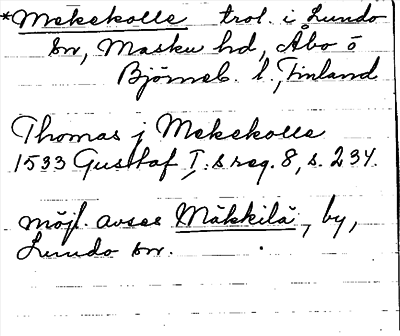 *Mekekolle trol. i Lundo
sn, Masku hd, Åbo o
Björneb. l., Finland
Thomas j Mekekolle
1533 Gustaf I:s reg. 8, s. 234.
möjl. avses Mäkkilä, by,
Lundo sn.